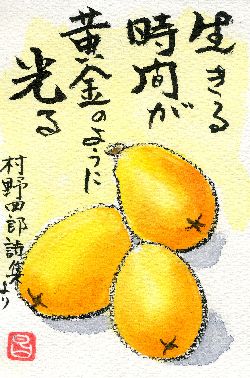 生きる
時間が
黄金のように
光る
村野四郎詩集より